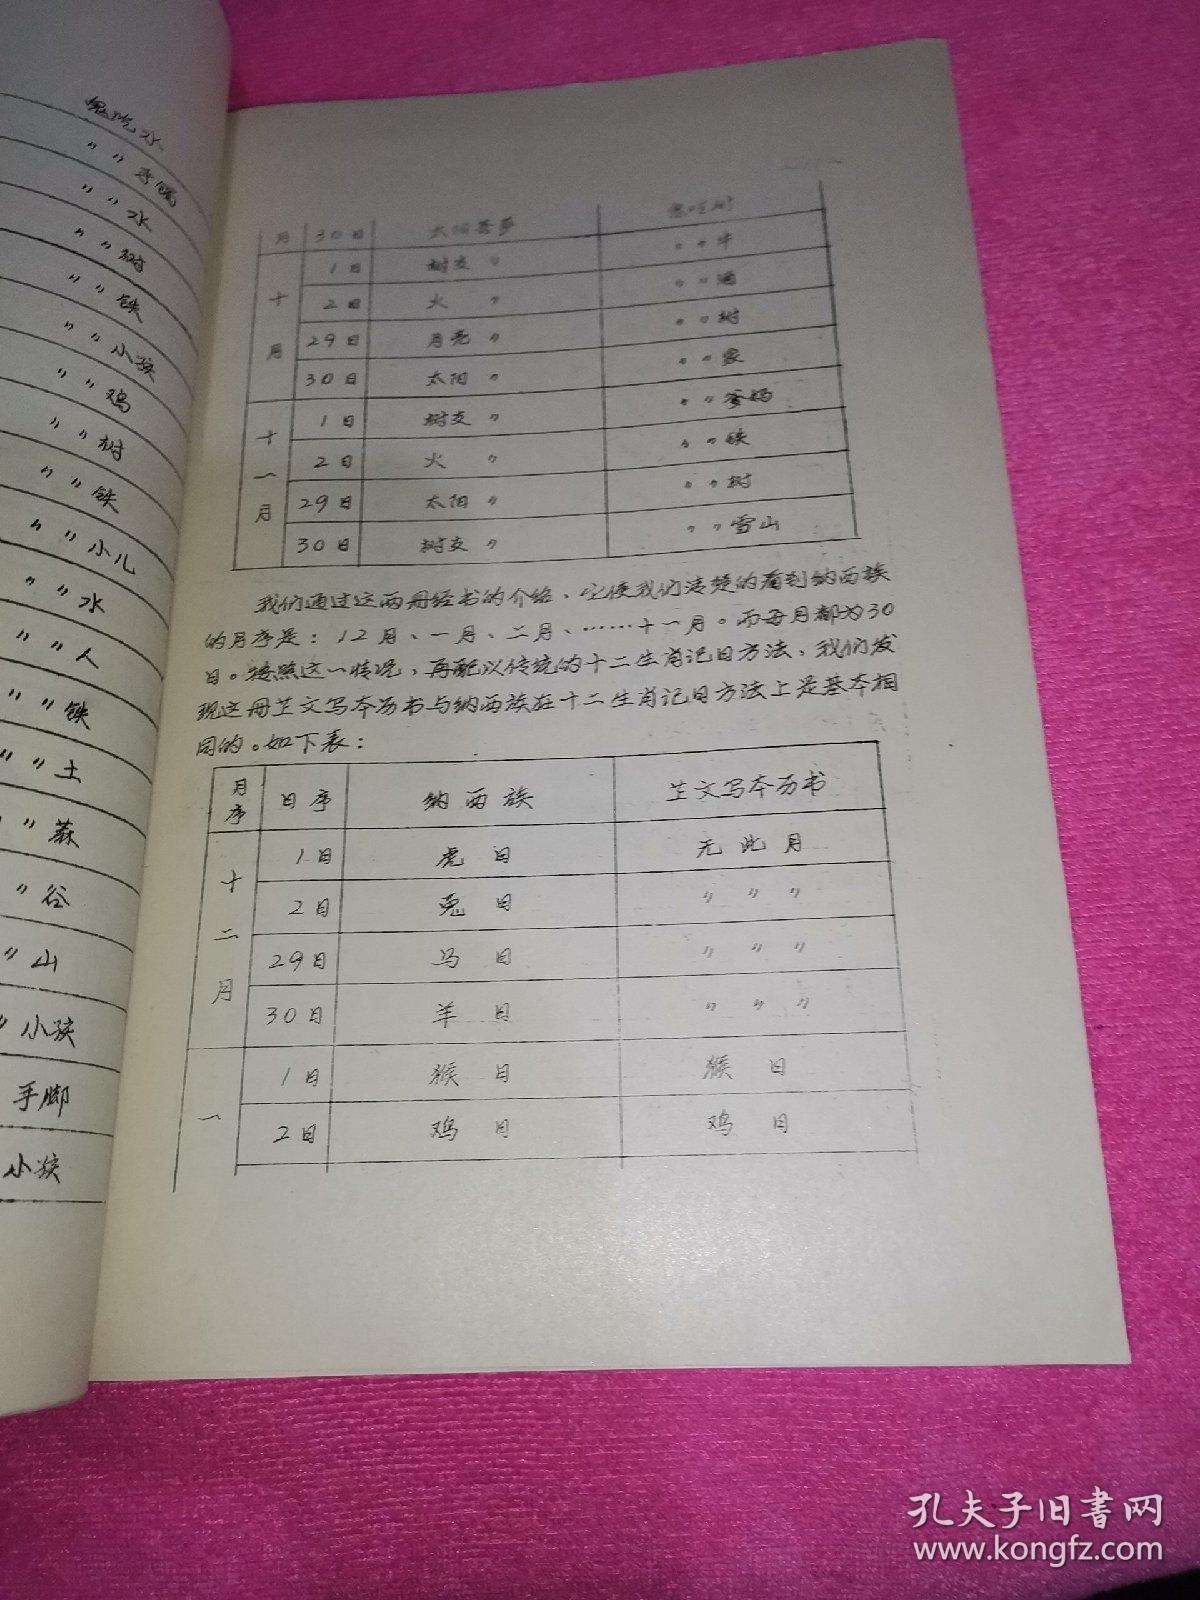 鬼吃水
〃〃
〃〃水
〃〃树
〃〃铁
〃〃小孩
〃〃鸡
〃〃树
〃〃铁
〃〃小儿
〃〃水
〃〃人
〃〃铁
〃〃土
〃〃麻
〃谷
〃山
〃小孩
手脚
小孩
月 30日 太阳 鬼吃树
十月 1日 树支〃 〃〃牛
2日 火〃 〃〃酒
29日 月亮〃 〃〃树
30日 太阳〃 〃〃家
十一月 1日 树支〃 〃〃爹妈
2日 火〃 〃〃铁
29日 太阳〃 〃〃树
30日 树支〃 〃〃雪山
我们通过这两册经书的介绍、它使我们清楚的看到纳西族
的月序是：12月、一月、二月、……十一月。而每月都为30
日。按照这一情况，再配以传统的十二生肖记日方法、我们发
现这册芏文写本历书与纳西族在十二生肖记日方法上是基本相
同的。如下表：
月序 日序 纳西族 芏文写本历书
十二月 1日 虎日 无此月
2日 兔日 〃〃〃
29日 马日 〃〃〃
30日 羊日 〃〃〃
一 1日 猴日 猴日
2日 鸡日 鸡日
孔夫子旧书网
www.kongfz.com